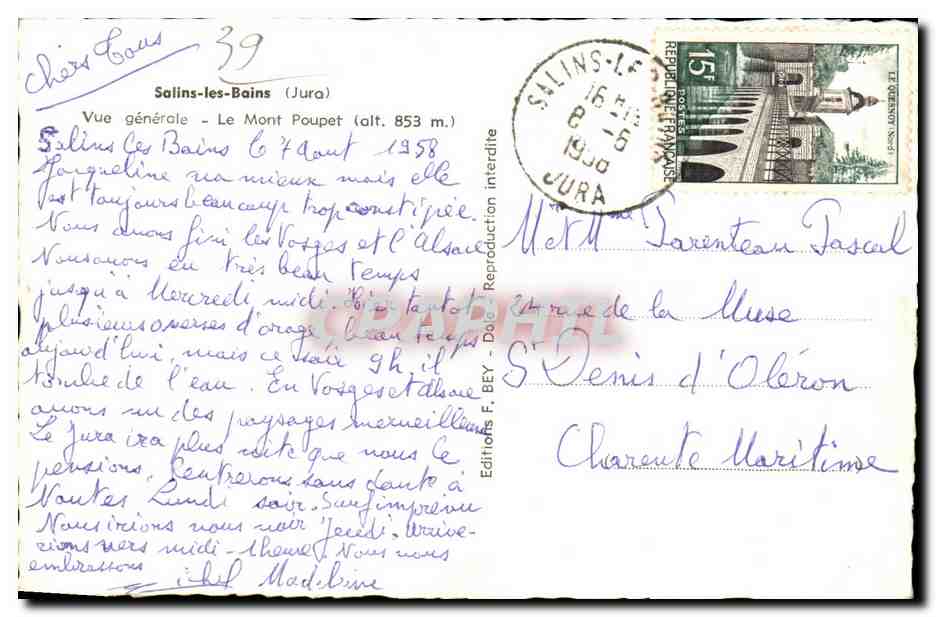 chers tous
39
Salins-les-Bains (Jura)
Vue générale - Le Mont Poupet (alt. 853 m.)
Salins les Bains le 7 Aout 1958
Jacqueline va mieux mais elle
est toujours beaucoup trop constipée.
Nous avons fini les Vosges et l'Alsace
Nous avons eu très beau temps
jusqu'à Mercredi midi. Hier tantot
plusieurs averses d'orage, beau temps
aujourd'hui, mais ce soir 9h, il
tombe de l'eau. En Vosges et Alsace
avons vu des paysages merveilleux
Le Jura ira plus vite que nous le
pensions. Rentrerons sans doute à
Nantes Lundi soir. Sauf imprévu
Nous irions vous voir Jeudi. Arrive-
rions vers midi - 1 heure. Nous vous
embrassons
Madeleine
Editions F. BEY - Dole Reproduction interdite
CPAPHIL
SALINS-LES
16H
8 -5
1958
JURA
15F
POSTES
REPUBLIQUE FRANCAISE
LE QUESNOY (Nord)
M et Mme Parenteau Pascal
24 rue de la Muse
St Denis d'Oléron
Charente Maritime